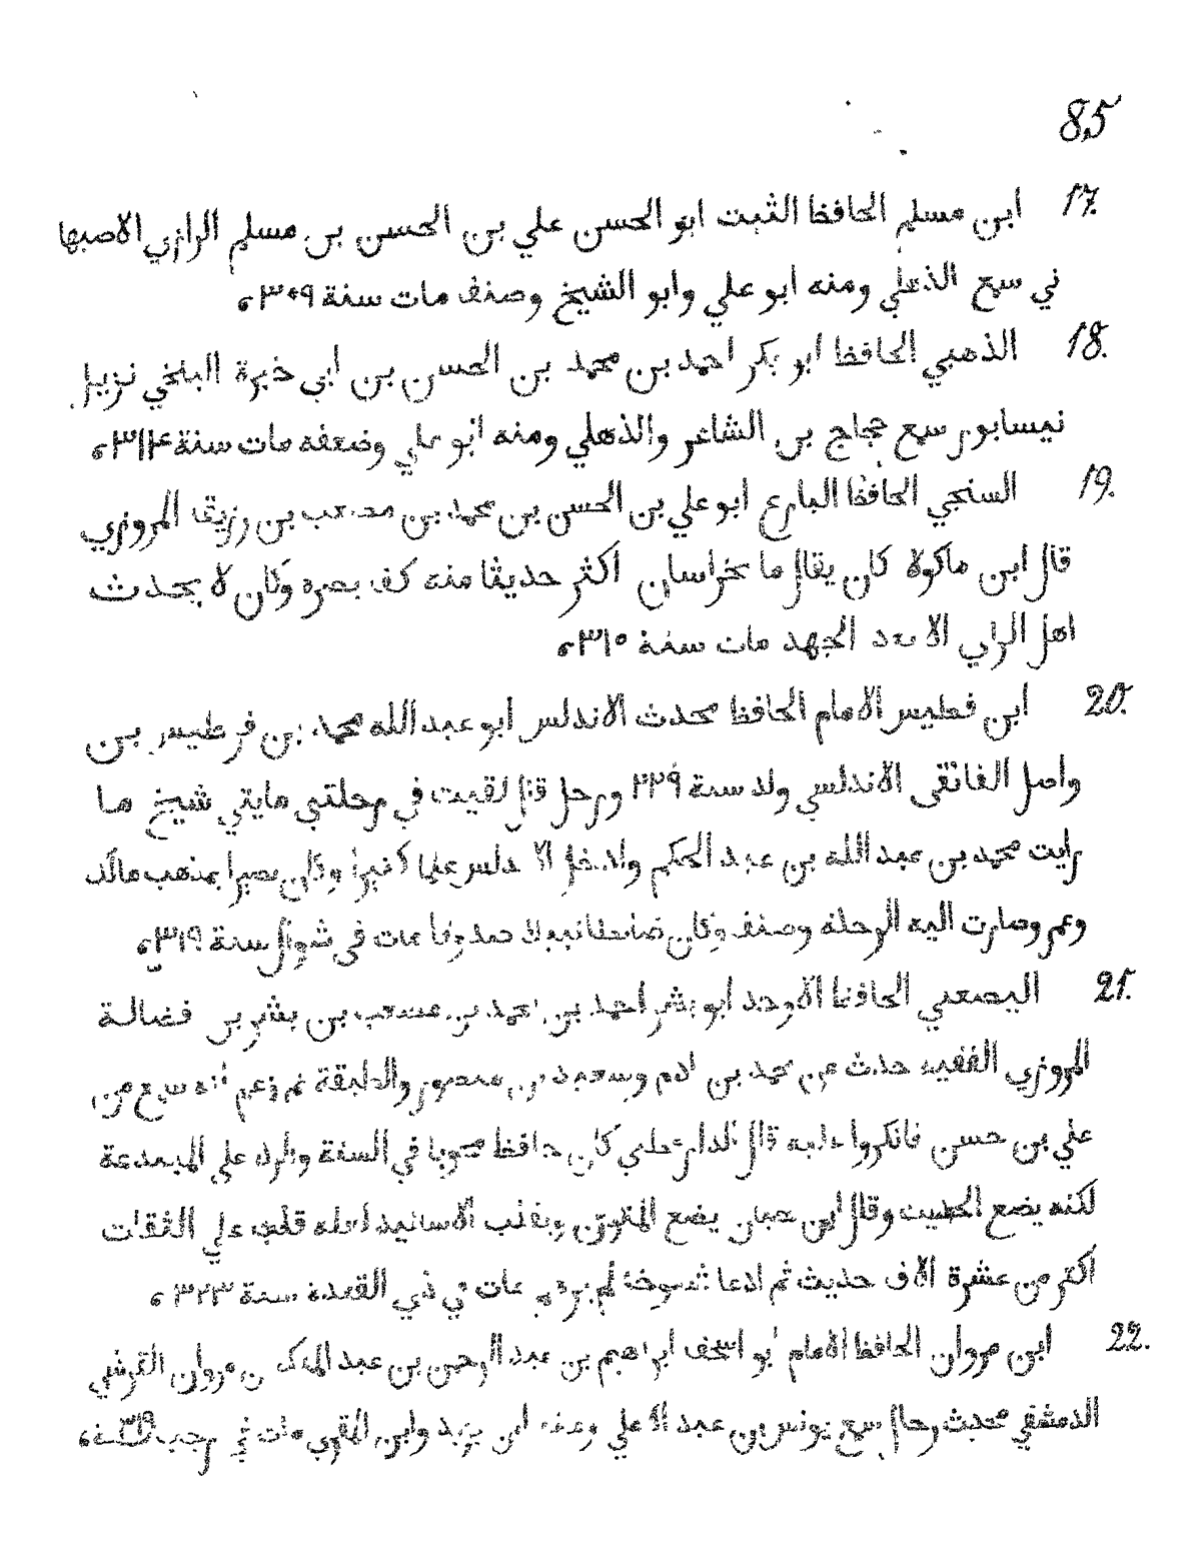 85
17. ابن مسلم الحافظ الثبت ابو الحسن علي بن الحسن بن مسلم الرازي الاصبها
ني سمع الذهلي ومنه ابو علي وابو الشيخ وصنف مات سنة ٣٠٩ ه
18. الذهبي الحافظ ابو بكر احمد بن محمد بن الحسن بن ابي خبرة البلخي نزيل
نيسابور سمع حجاج بن الشاعر والذهلي ومنه ابو علي وضعفه مات سنة ٣١٤ ه
19. السنجي الحافظ البارع ابو علي بن الحسن بن محمد بن مصعب بن رزيق المروزي
قال ابن ماكولا كان يقال ما بخراسان اكثر حديثا منه كف بصره وكان لا يحدث
اهل الراي الا بعد الجهد مات سنة ٣١٥ ه
20. ابن فطيس الامام الحافظ محدث الاندلس ابو عبد الله محمد بن فرطيس بن
واصل الغافقى الاندلسي ولد سنة ٢٢٩ ورحل قال لقيت في رحلتي مايتي شيخ ما
رايت محمد بن عبد الله بن عبد الحكم وادخل الاندلس علما كثيرا وكان بصيرا بمذهب مالك
وعمر وصارت اليه الرحله وصنف وكان ضابطا نبيلا صدوقا مات فى شوال سنة ٣١٩ ه
21. المصعبي الحافظ الاوحد ابو بشر احمد بن محمد بن مصعب بن بشر بن فضالة
المروزي الفقيه حدث عن محمد بن ادم وسعيد بن منصور والطبقة ثم زعم انه سمع من
علي بن حسن فانكروا عليه قال الدارقطني كان حافظا في السنة والرد على المبتدعة
لكنه يضع الحديث وقال ابن حبان يضع المتون ويقلب الاسانيد لعله قلب علي الثقات
اكثر من عشرة الاف حديث ثم ادعا شيوخا لم يرهم مات في ذي القعدة سنة ٣٢٣ ه
22. ابن مروان الحافظ الامام ابو اسحق ابراهيم بن عبد الرحمن بن عبد الملك بن مروان القرشي
الدمشقي محدث رحال سمع يونس بن عبد الاعلي وعنه ابن يزيد وابن المقري مات في رجب سنة ٣١٩ ه